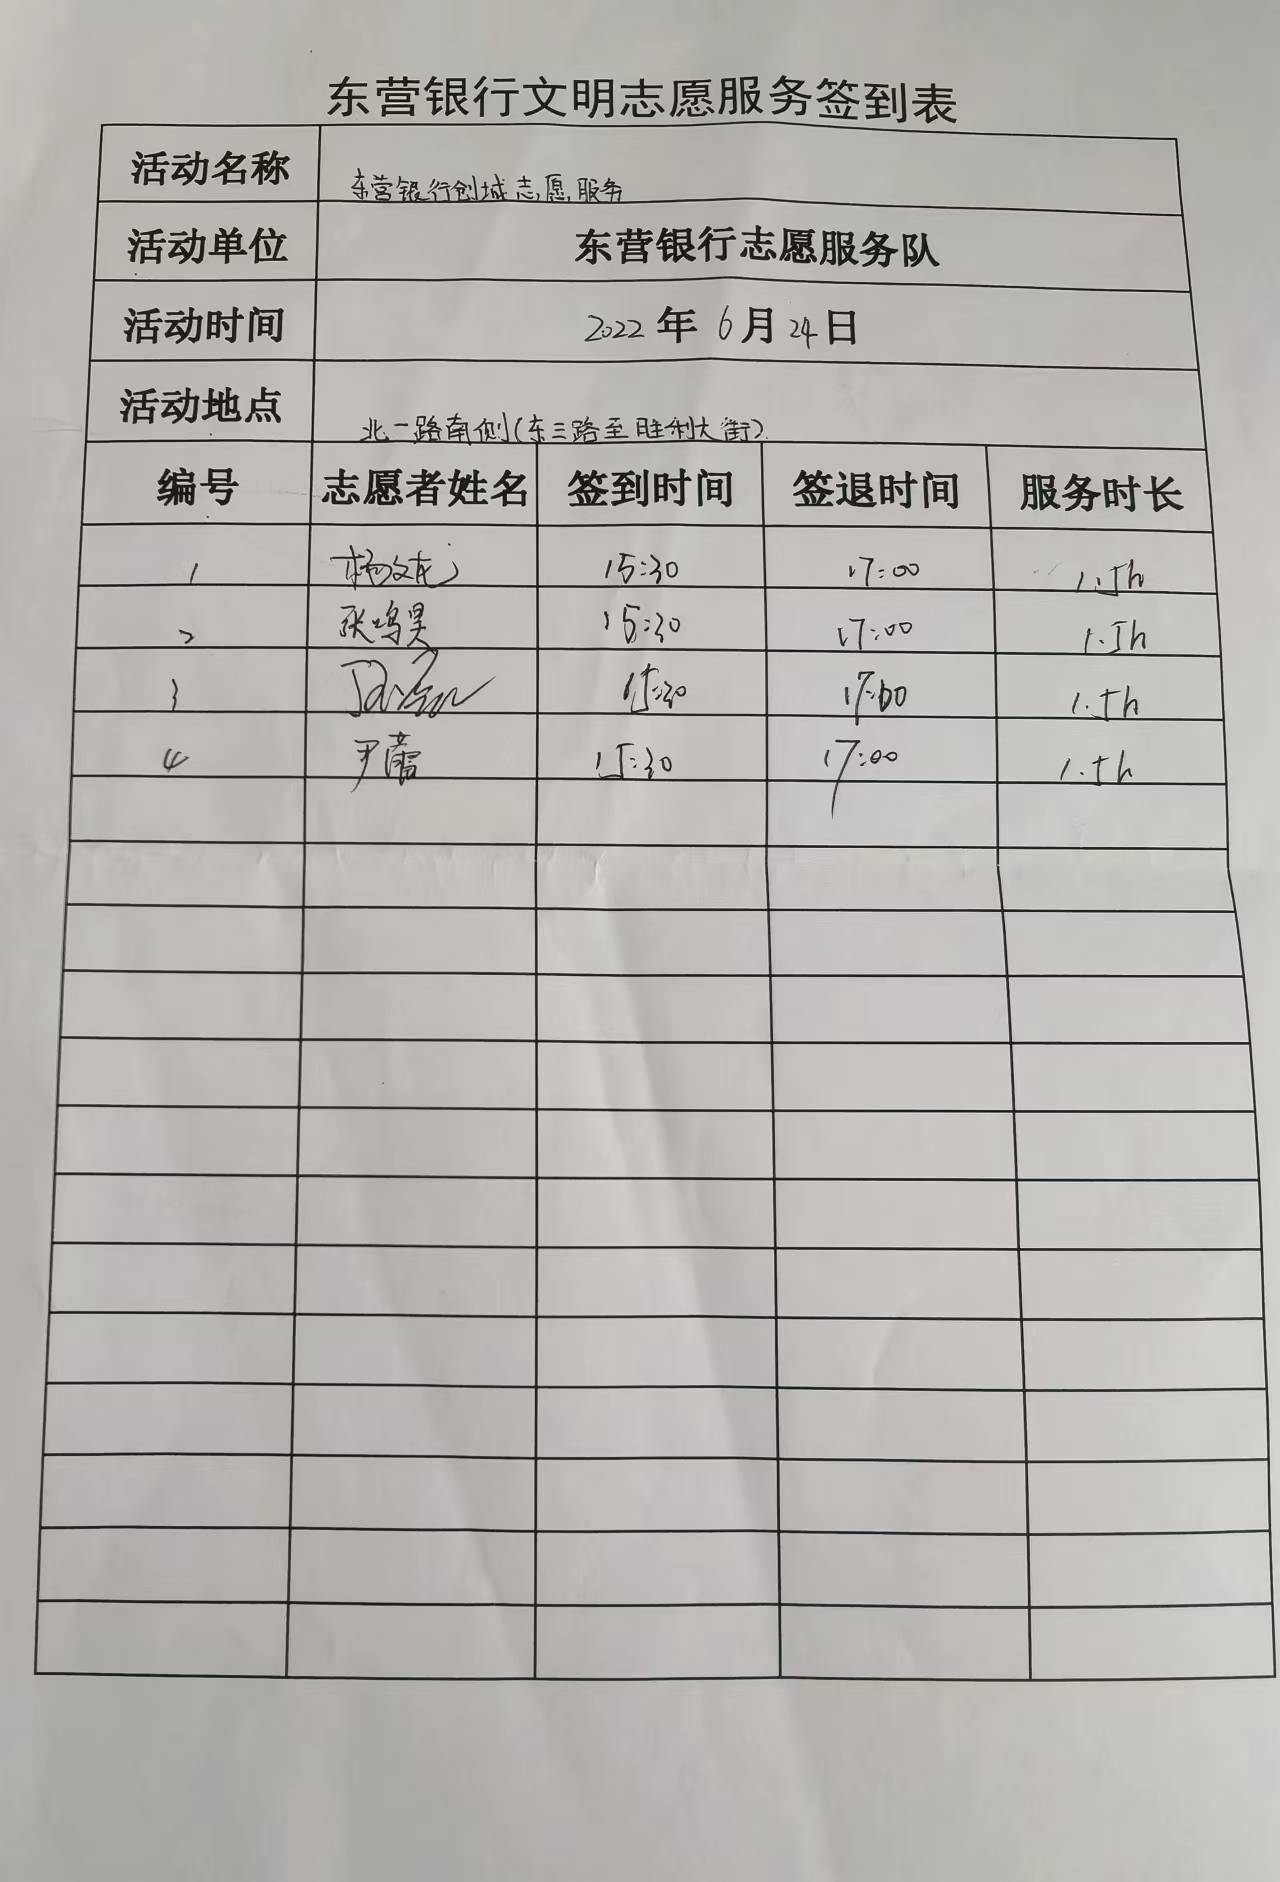 东营银行文明志愿服务签到表
活动名称 东营银行创城志愿服务
活动单位 东营银行志愿服务队
活动时间 2022年6月24日
活动地点 北一路南侧(东三路至胜利大街)
编号 志愿者姓名 签到时间 签退时间 服务时长
1 杨文龙 15:30 17:00 1.5h
2 张鸣昊 15:30 17:00 1.5h
3 15:30 17:00 1.5h
4 尹蕾 15:30 17:00 1.5h